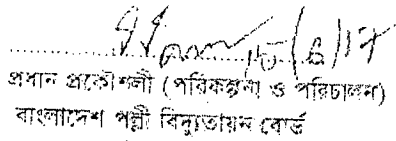 প্রধান প্রকৌশলী (পরিকল্পনা ও পরিচালন)
বাংলাদেশ পল্লী বিদ্যুতায়ন বোর্ড